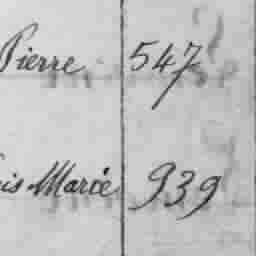 Pierre 547
is Marie 939